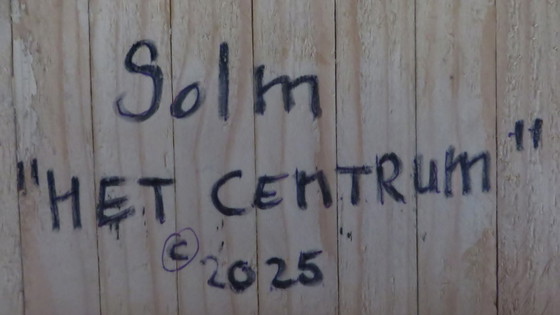 Solm
"HET CENTRUM"
© 2025